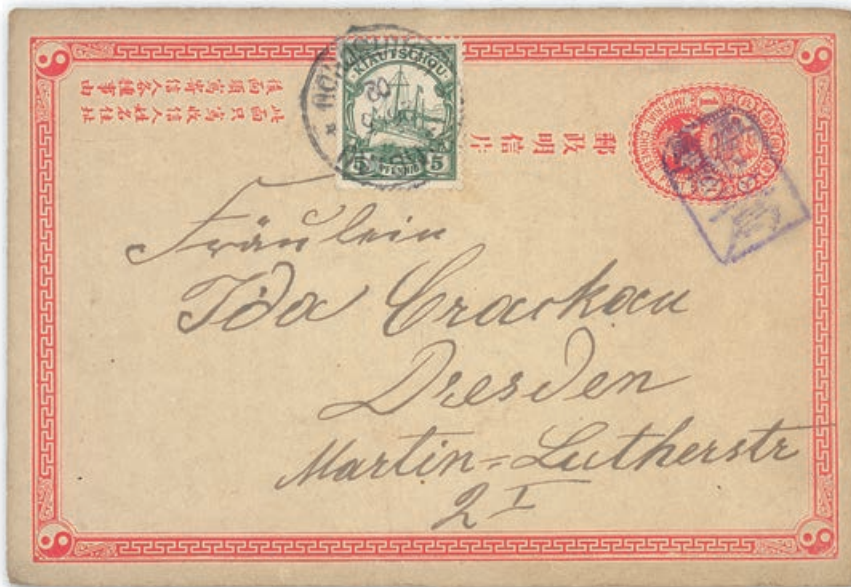 此面只寫收信人姓名住址
後面須寫寄信人各種事由
KIAUTSCHOU
5 PFENNIG 5
郵政明信片
1
IMPERIAL CHINESE POST
Fräulein
Ida Crackau
Dresden
Martin=Lutherstr
2 I